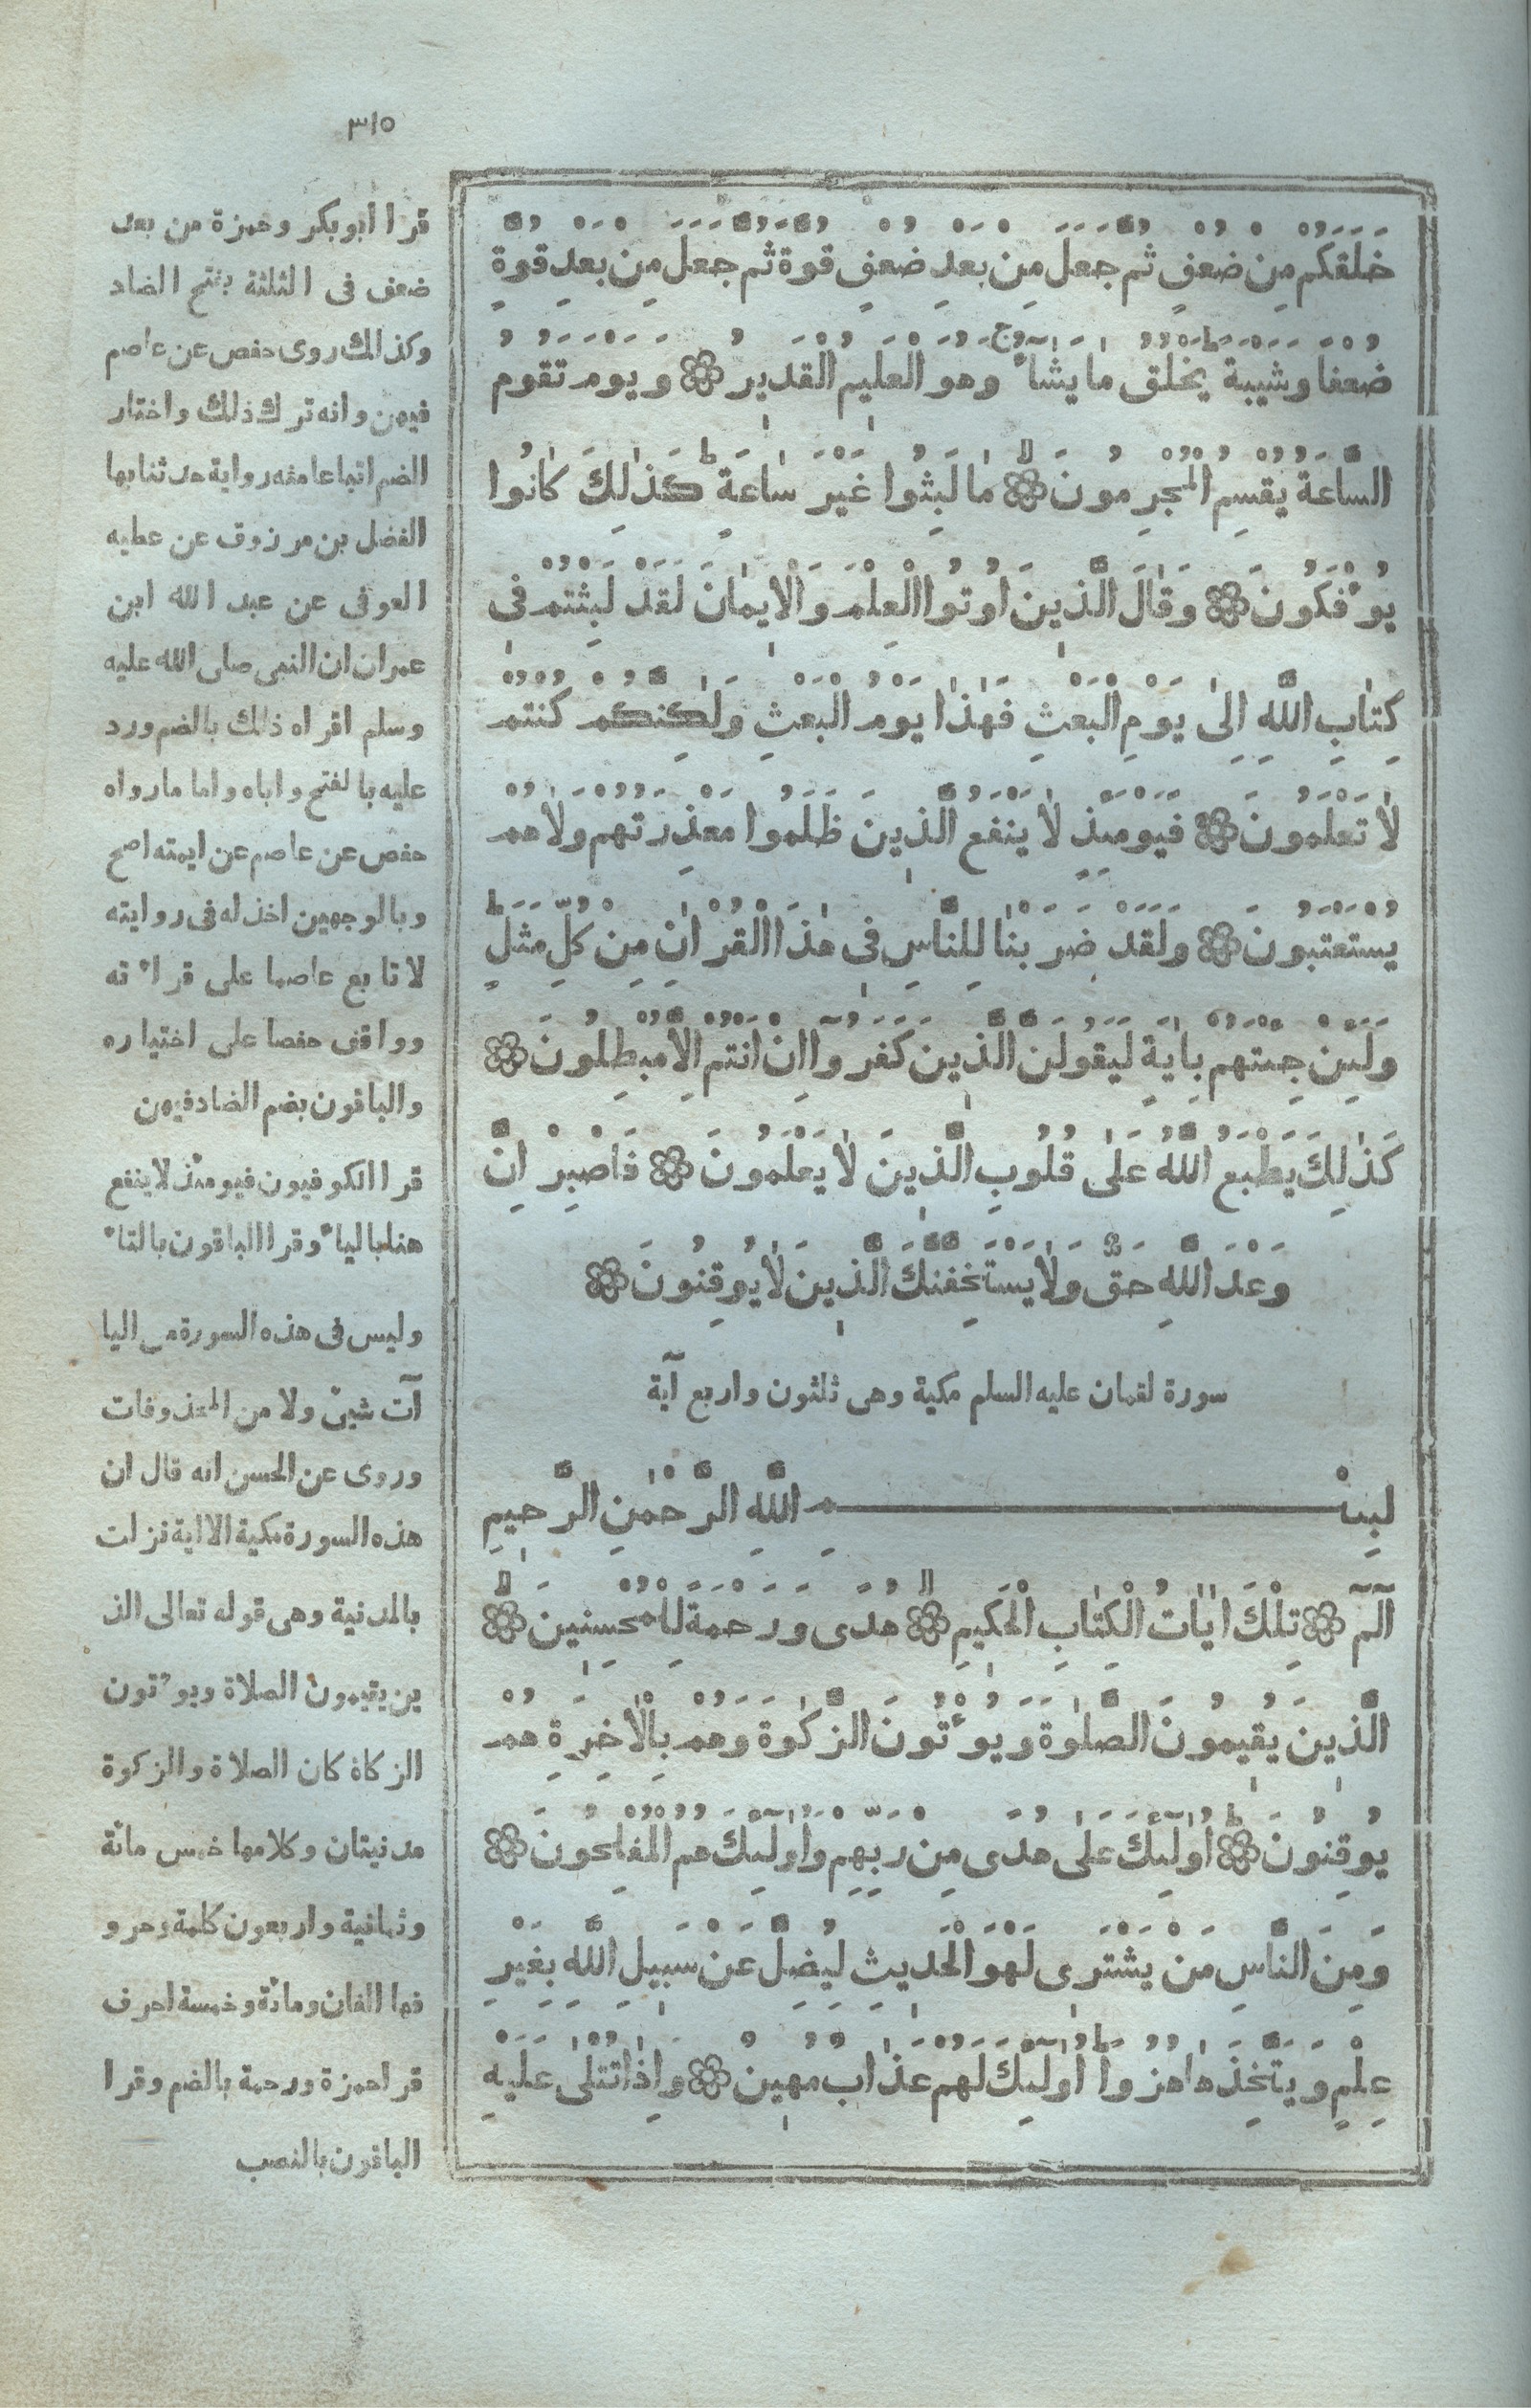 ٣١٥
خَلَقَكُمْ مِنْ ضُعْفٍ ثُمَّ جَعَلَ مِنْ بَعْدِ ضُعْفٍ قُوَّةً ثُمَّ جَعَلَ مِنْ بَعْدِ قُوَّةٍ
ضُعْفًا وَشَيْبَةً يَخْلُقُ مَا يَشَاءُ وَهُوَ الْعَلِيمُ الْقَدِيرُ وَيَوْمَ تَقُومُ
السَّاعَةُ يُقْسِمُ الْمُجْرِمُونَ مَا لَبِثُوا غَيْرَ سَاعَةٍ كَذٰلِكَ كَانُوا
يُوءْفَكُونَ وَقَالَ الَّذِينَ اُوتُوا الْعِلْمَ وَالْاِيمَانَ لَقَدْ لَبِثْتُمْ فِى
كِتَابِ اللَّهِ اِلٰى يَوْمِ الْبَعْثِ فَهٰذَا يَوْمُ الْبَعْثِ وَلٰكِنَّكُمْ كُنْتُمْ
لَا تَعْلَمُونَ فَيَوْمَئِذٍ لَا يَنْفَعُ الَّذِينَ ظَلَمُوا مَعْذِرَتُهُمْ وَلَا هُمْ
يُسْتَعْتَبُونَ وَلَقَدْ ضَرَبْنَا لِلنَّاسِ فِى هٰذَا الْقُرْاٰنِ مِنْ كُلِّ مَثَلٍ
وَلَئِنْ جِئْتَهُمْ بِاٰيَةٍ لَيَقُولَنَّ الَّذِينَ كَفَرُوٓا اِنْ اَنْتُمْ اِلَّا مُبْطِلُونَ
كَذٰلِكَ يَطْبَعُ اللَّهُ عَلٰى قُلُوبِ الَّذِينَ لَا يَعْلَمُونَ فَاصْبِرْ اِنَّ
وَعْدَ اللَّهِ حَقٌّ وَلَا يَسْتَخِفَّنَّكَ الَّذِينَ لَا يُوقِنُونَ
سورة لقمان عليه السلم مكية وهى ثلثون واربع آية
بِسْمِ اللَّهِ الرَّحْمٰنِ الرَّحِيمِ
آلٓمٓ تِلْكَ اٰيَاتُ الْكِتَابِ الْحَكِيمِ هُدًى وَرَحْمَةً لِلْمُحْسِنِينَ
الَّذِينَ يُقِيمُونَ الصَّلٰوةَ وَيُوءْتُونَ الزَّكٰوةَ وَهُمْ بِالْاٰخِرَةِ هُمْ
يُوقِنُونَ اُولٰٓئِكَ عَلٰى هُدًى مِنْ رَبِّهِمْ وَاُولٰٓئِكَ هُمُ الْمُفْلِحُونَ
وَمِنَ النَّاسِ مَنْ يَشْتَرِى لَهْوَ الْحَدِيثِ لِيُضِلَّ عَنْ سَبِيلِ اللَّهِ بِغَيْرِ
عِلْمٍ وَيَتَّخِذَهَا هُزُوًا اُولٰٓئِكَ لَهُمْ عَذَابٌ مُهِينٌ وَاِذَا تُتْلٰى عَلَيْهِ
قرا ابو بكر وحمزة من بعد
ضعف فى الثلثة بفتح الضاد
وكذالك روى حفص عن عاصم
فيهن وانه ترك ذلك واختار
الضم اتباعا منه رواية حدثنا بها
الفضل بن مرزوق عن عطيه
العوفى عن عبد الله ابن
عمران ان النبى صلى الله عليه
وسلم اقراه ذلك بالضم ورد
عليه بالفتح واباه واما ما رواه
حفص عن عاصم عن ايمته اصح
وبالوجهين اخذ له فى روايته
لاتابع عاصما على قراءته
وواقف حفصا على اختياره
والباقون بضم الضاد فيهن
قرا الكوفيون فيومئذ لا ينفع
هنا بالياء وقرا الباقون بالتاء
وليس فى هذه السورة من اليا
آت شىء ولا من المحذوفات
وروى عن الحسن انه قال ان
هذه السورة مكية الا اية نزلت
بالمدنية وهى قوله تعالى الذ
ين يقيمون الصلاة ويوءتون
الزكاة كان الصلاة والزكوة
مدنيتان وكلامها خمس مائة
وثمانية واربعون كلمة وحرو
فها الفان ومائة وخمسة احرف
قرا حمزة ورحمة بالضم وقرا
الباقون بالنصب